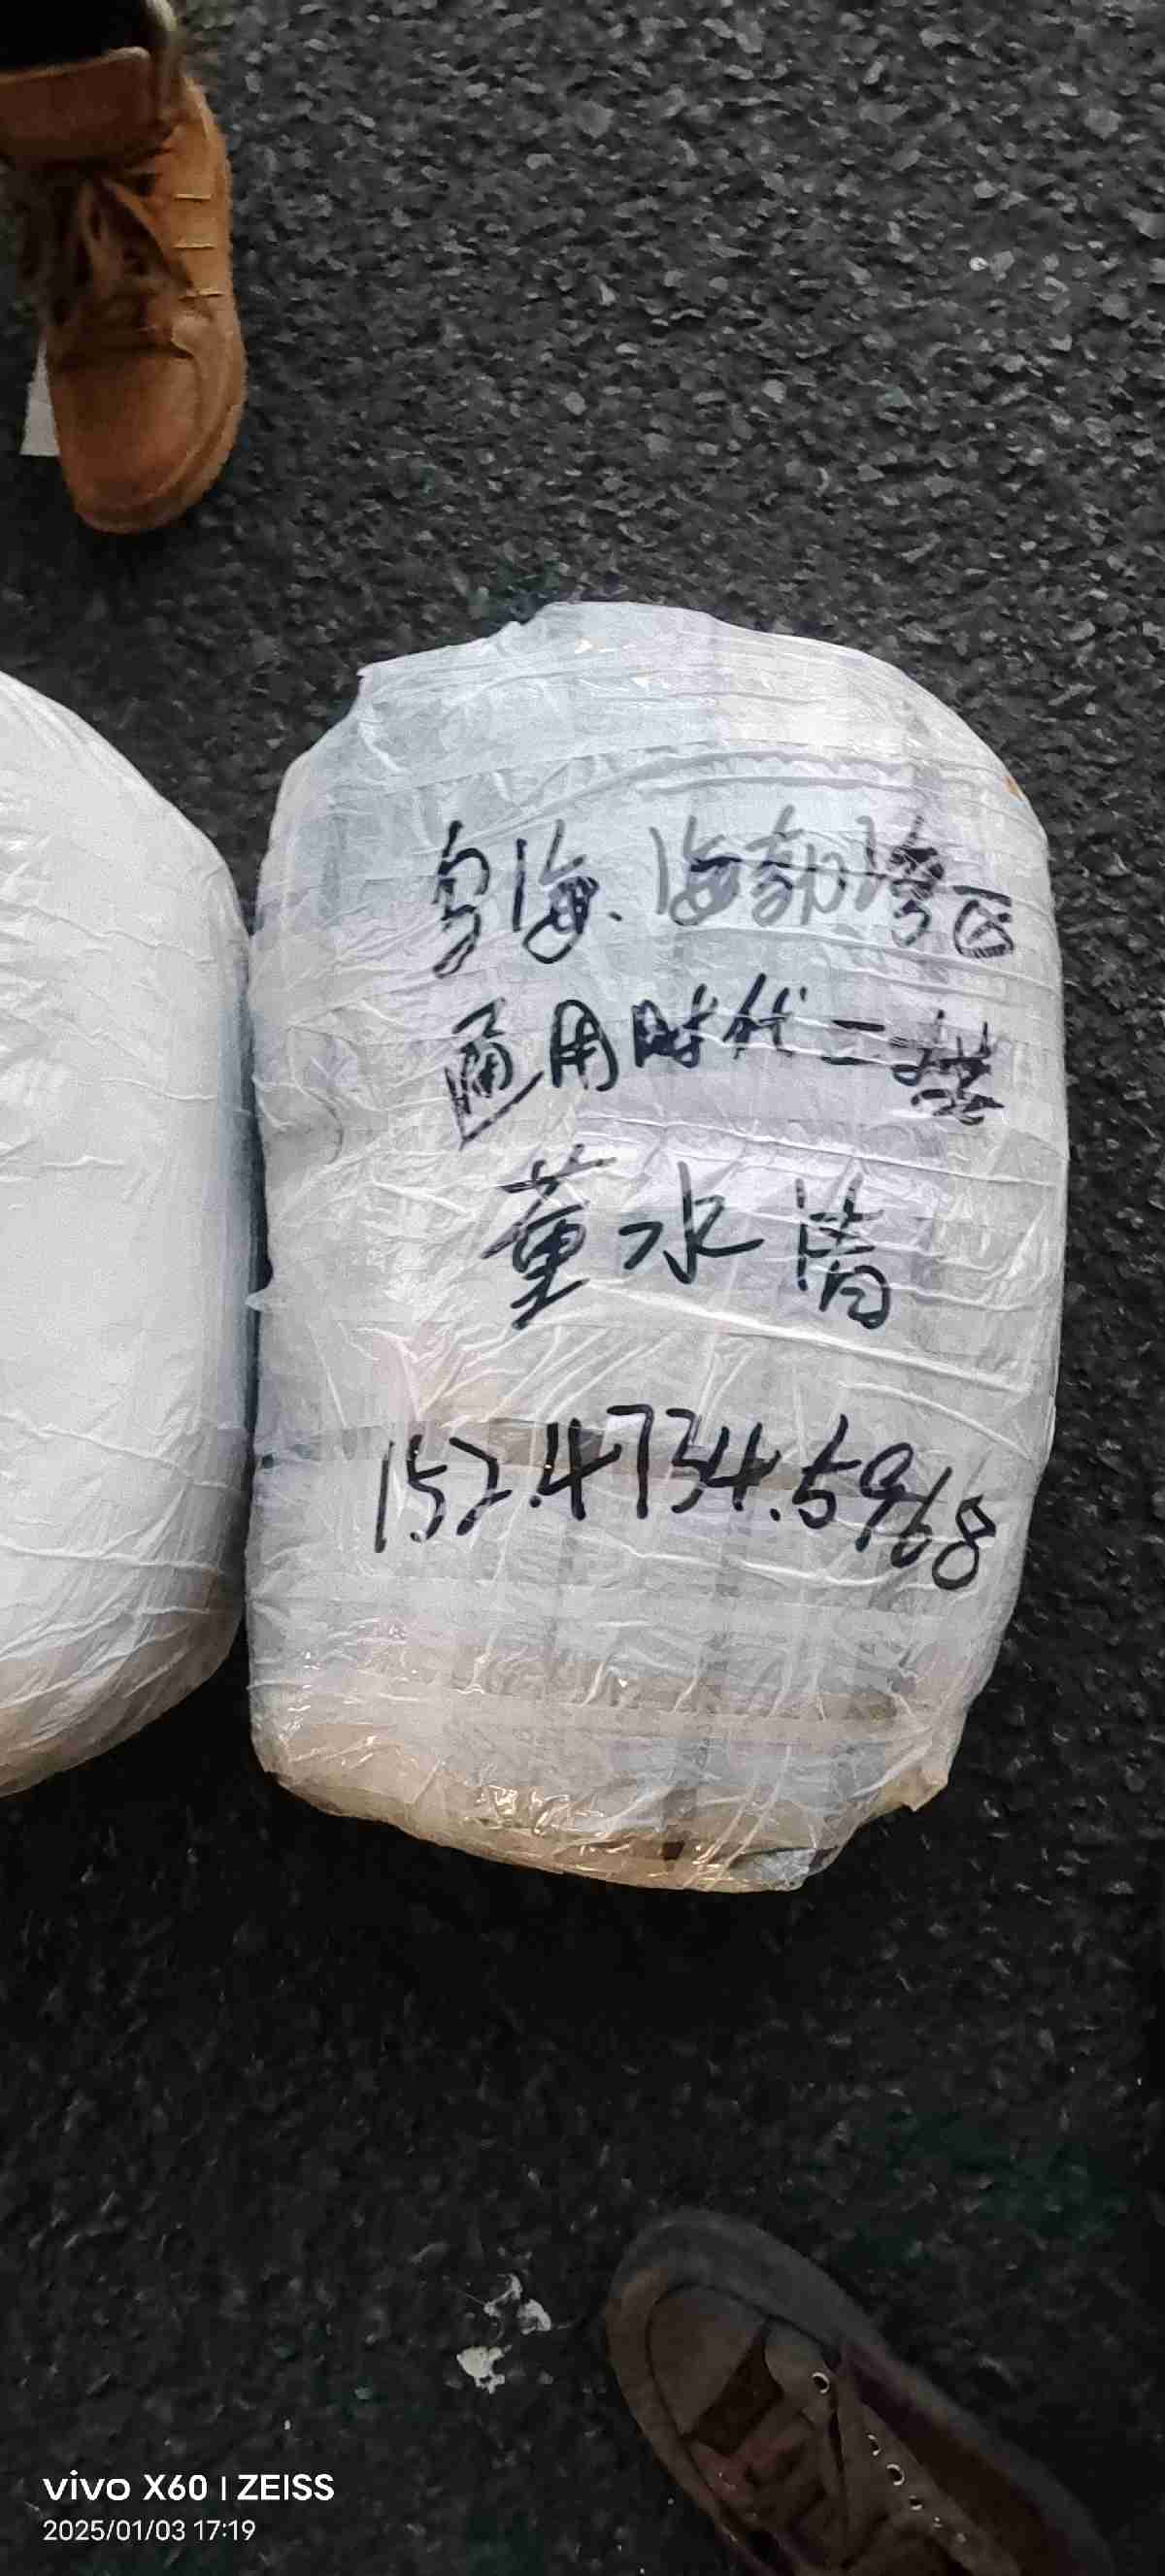 乌海.海勃湾区
通用时代二楼
董水清
152.4734.5968
vivo X60 | ZEISS
2025/01/03 17:19